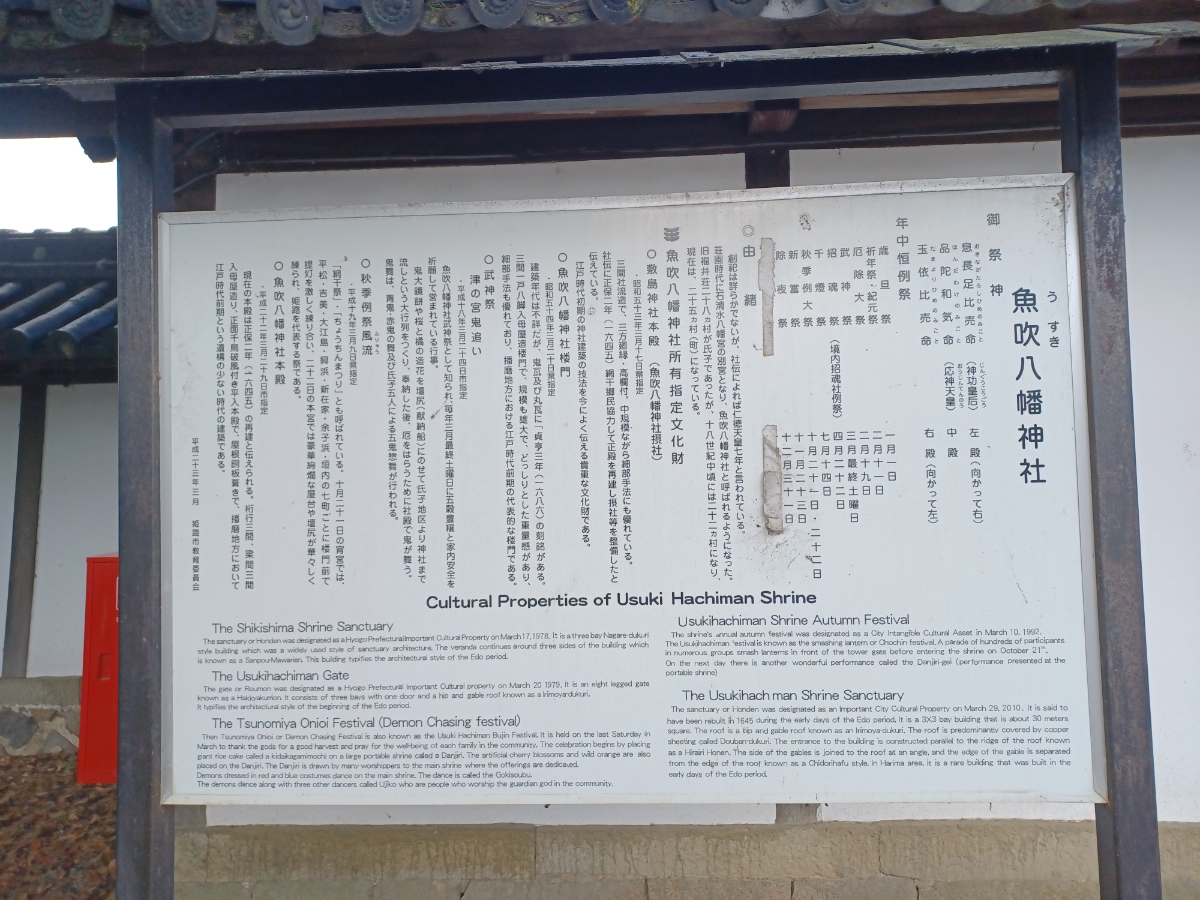 うすき
魚吹八幡神社
御祭神
おきながたらしひめのみこと
息長足比売命
じんぐうこうごう
(神功皇后)
左殿(向かって右)
ほんだわけのみこと
品陀和気命
おうじんてんのう
(応神天皇)
中殿
たまよりひめのみこと
玉依比売命
右殿(向かって左)
年中恒例祭
歳旦祭 一月一日
祈年祭・紀元祭 二月十一日
厄除大祭 二月十九日
武神祭 三月最終土曜日
招魂祭(境内招魂社例祭) 四月二十二日
千燈祭 七月二十四日
秋季例大祭 十月二十一日・二十二日
新嘗祭 十一月二十三日
除夜祭 十二月三十一日
◎由緒
創祀は詳らかでないが、社伝によれば仁徳天皇七年と言われている。
荘園時代に石清水八幡宮の別宮となり、魚吹八幡神社と呼ばれるようになった。
旧福井荘二十八ヵ村が氏子であったが、十八世紀中頃には二十二ヵ村になり、
現在は、二十五ヵ村(町)になっている。
魚吹八幡神社所有指定文化財
○敷島神社本殿(魚吹八幡神社摂社)
・昭和五十三年三月十七日県指定
三間社流造で、三方廻縁、高欄付。中規模ながら細部手法にも優れている。
社伝に正保二年(一六四五)網干郷民協力して正殿を再建し摂社等を整備したと
伝えている。
江戸時代初期の神社建築の技法を今によく伝える貴重な文化財である。
○魚吹八幡神社楼門
・昭和五十四年三月二十日県指定
建築年代は不詳だが、鬼瓦及び丸瓦に「貞亨三年(一六八六)の刻銘がある。
三間一戸八脚入母屋造楼門で、規模も雄大で、どっしりとした重量感があり、
細部手法も優れており、播磨地方における江戸時代前期の代表的な楼門である。
○武神祭
津の宮鬼追い
・平成十八年三月二十四日市指定
魚吹八幡神社武神祭として知られ、毎年三月最終土曜日に五穀豊穣と家内安全を
祈願して営まれている行事。
鬼大鏡餅や桜と橘の造花を壇尻(献納船)にのせて氏子地区より神社まで
流しという大行列をつくり、奉納した後、厄をはらうために社殿で鬼が舞う。
鬼舞は、青鬼・赤鬼の舞及び氏子五人による五鬼惣舞が行われる。
○秋季例祭風流
・平成十九年三月九日県指定
「網干祭」、「ちょうちんまつり」とも呼ばれている。十月二十一日の宵宮では、
平松・吉美・大江島・興浜・新在家・余子浜・垣内の七町ごとに楼門前で
提灯を激しく練り合い、二十二日の本宮では豪華絢爛な屋台や壇尻が華々しく
練られ、姫路を代表する祭である。
○魚吹八幡神社本殿
・平成二十二年三月二十九日市指定
現在の本殿は正保二年(一六四五)の再建と伝えられる。桁行三間、梁間三間
入母屋造り、正面千鳥破風付き平入本殿で、屋根銅板葺きで、播磨地方において
江戸時代前期という遺構の少ない時代の建築である。
平成二十三年三月 姫路市教育委員会
Cultural Properties of Usuki Hachiman Shrine
The Shikishima Shrine Sanctuary
The sanctuary or Honden was designated as a Hyogo Prefectural Important Cultural Property on March 17, 1978. It is a three bay Nagare-dukuri
style building which was a widely used style of sanctuary architecture. The veranda continues around three sides of the building which
is known as a Sanpou-Mawarien. This building typifies the architectural style of the Edo period.
The Usukihachiman Gate
The gate or Roumon was designated as a Hyogo Prefectural Important Cultural property on March 20 1979. It is an eight legged gate
known as a Hakkyakumon. It consists of three bays with one door and a hip and gable roof known as a Irimoya-dukuri.
It typifies the architectural style of the beginning of the Edo period.
The Tsunomiya Onioi Festival (Demon Chasing festival)
Then Tsunomiya Onioi or Demon Chasing Festival is also known as the Usuki Hachiman Bujin Festival. It is held on the last Saturday in
March to thank the gods for a good harvest and pray for the well-being of each family in the community. The celebration begins by placing
giant rice cake called a kidaikagamimochi on a large portable shrine called a Danjiri. The artificial cherry blossoms and wild orange are also
placed on the Danjiri. The Danjiri is drawn by many worshippers to the main shrine where the offerings are dedicated.
Demons dressed in red and blue costumes dance on the main shrine. The dance is called the Gokisoubu.
The demons dance along with three other dancers called Ujiko who are people who worship the guardian god in the community.
Usukihachiman Shrine Autumn Festival
The shrine's annual autumn festival was designated as a City Intangible Cultural Asset in March 10, 1992.
The Usukihachiman festival is known as the smashing lantern or Chochin festival. A parade of hundreds of participants
in numerous groups smash lanterns in front of the tower gate before entering the shrine on October 21st.
On the next day there is another wonderful performance called the Danjiri-gei (performance presented at the
portable shrine)
The Usukihach man Shrine Sanctuary
The sanctuary or Honden was designated as an Important City Cultural Property on March 29, 2010. It is said to
have been rebuilt in 1645 during the early days of the Edo period. It is a 3X3 bay building that is about 30 meters
square. The roof is a hip and gable roof known as an Irimoya-dukuri. The roof is predominantly covered by copper
sheeting called Douban-dukuri. The entrance to the building is constructed parallel to the ridge of the roof known
as a Hirairi Honen. The side of the gables is joined to the roof at an angle, and the edge of the gable is separated
from the edge of the roof known as a Chidorihafu style. In Harima area, it is a rare building that was built in the
early days of the Edo period.